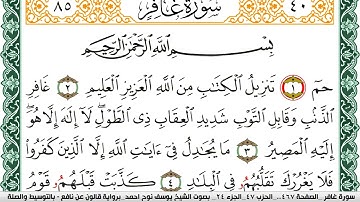 ٨٥ سُورَةُ غَافِرٍ ٤٠
بِسْمِ اللَّهِ الرَّحْمَٰنِ الرَّحِيمِ
حمٓ ١ تَنزِيلُ الْكِتَٰبِ مِنَ اللَّهِ الْعَزِيزِ الْعَلِيمِ ٢ غَافِرِ
الذَّنۢبِ وَقَابِلِ التَّوْبِ شَدِيدِ الْعِقَابِ ذِي الطَّوْلِ لَآ إِلَٰهَ إِلَّا هُوَ
إِلَيْهِ الْمَصِيرُ ٣ مَا يُجَٰدِلُ فِيٓ ءَايَٰتِ اللَّهِ إِلَّا الَّذِينَ كَفَرُوا
فَلَا يَغْرُرْكَ تَقَلُّبُهُمُ فِي الْبِلَٰدِ ٤ كَذَّبَتْ قَبْلَهُمُ قَوْمُ
سورة غافر . الصفحة ٤٦٧ . الحزب ٤٧ . الجزء ٢٤ بصوت الشيخ يوسف نوح احمد برواية قالون عن نافع - بالتوسيط والصلة